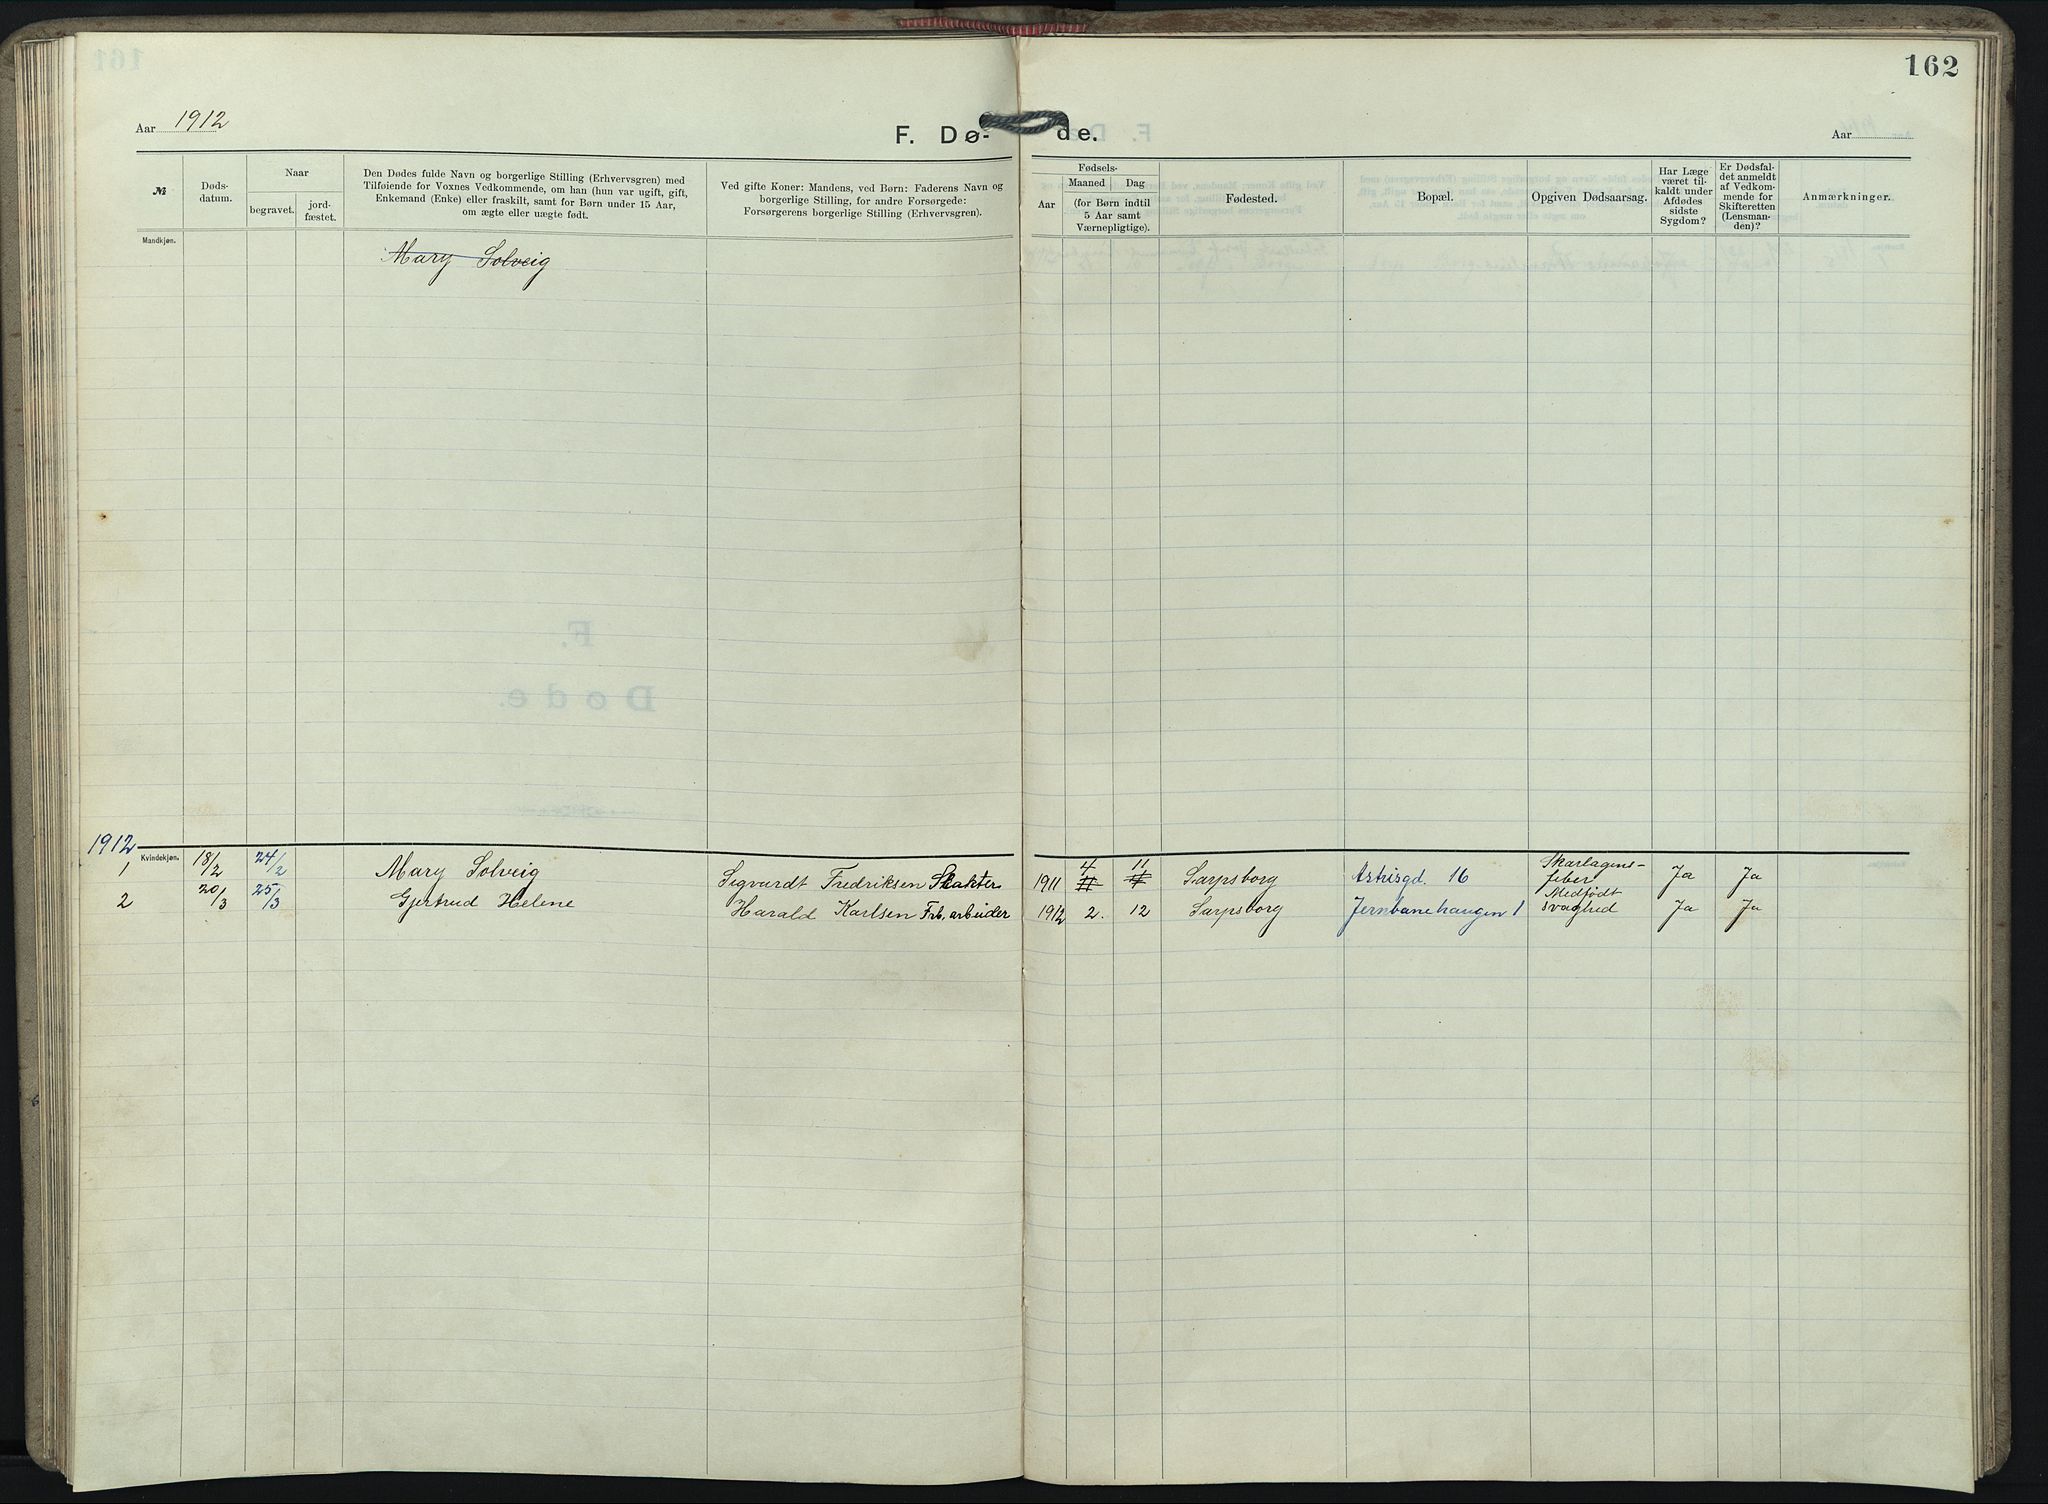 162
Aar 1912
F. Dø- de.
Aar
№
Døds-
datum.
Naar
begravet.
jord-
fæstet.
Den Dødes fulde Navn og borgerlige Stilling (Erhvervsgren) med
Tilføiende for Voxnes Vedkommende, om han (hun var ugift, gift,
Enkemand (Enke) eller fraskilt, samt for Børn under 15 Aar,
om ægte eller uægte født.
Ved gifte Koner: Mandens, ved Børn: Faderens Navn og
borgerlige Stilling, for andre Forsørgede:
Forsørgerens borgerlige Stilling (Erhvervsgren).
Fødsels-
Aar
Maaned
Dag
(for Børn indtil
5 Aar samt
Værnepligtige).
Fødested.
Bopæl.
Opgiven Dødsaarsag.
Har Læge
været til-
kaldt under
Afdødes
sidste
Sygdom?
Er Dødsfal-
det anmeldt
af Vedkom-
mende for
Skifteretten
(Lensman-
den)?
Anmærkninger.
Mandkjøn.
Mary Solveig
F.
Døde.
1912
Kvindekjøn.
1 18/2 24/2 Mary Solveig Sigvardt Fredriksen 1911 4 11 Sarpsborg Astrisgd. 16 Skarlagens-
feber Ja Ja
2 20/3 25/3 Gjertrud Helene Harald Karlsen Frb. arbeider 1912 2. 12 Sarpsborg Jernbanehaugen 1 Medfødt
svaghed Ja Ja